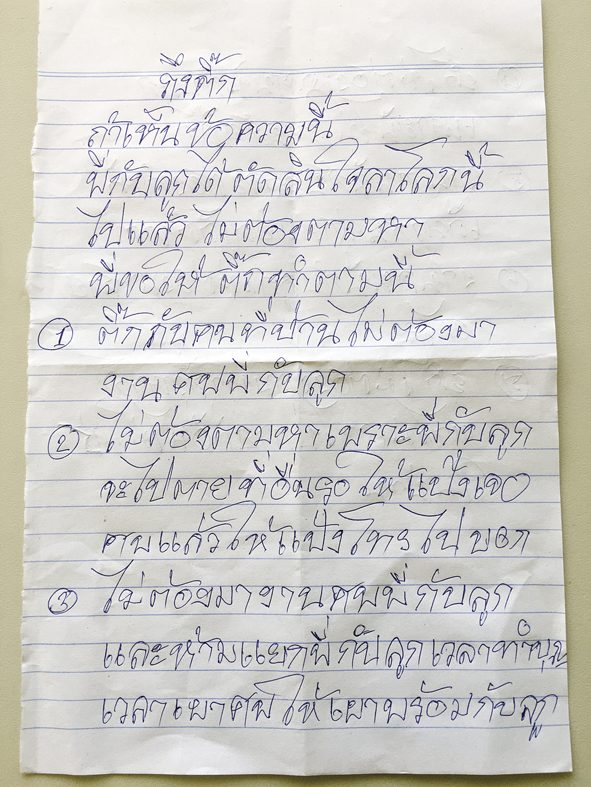 ถึงติ๊ก
ถ้าเห็นข้อความนี้
พี่กับลูกได้ตัดสินใจลาโลกนี้
ไปแล้ว ไม่ต้องตามหา
พี่ขอให้ติ๊กทำตามนี้
① ติ๊กกับคนที่บ้านไม่ต้องมา
งานศพพี่กับลูก
② ไม่ต้องตามหาเพราะพี่กับลูก
จะไปตายที่อื่นรอให้แป้งเจอ
ศพแล้วให้แป้งโทรไปบอก
③ ไม่ต้องมางานศพพี่กับลูก
และห้ามแยกพี่กับลูกเวลาทำบุญ
เวลาเผาศพให้เผาพร้อมกับลูก